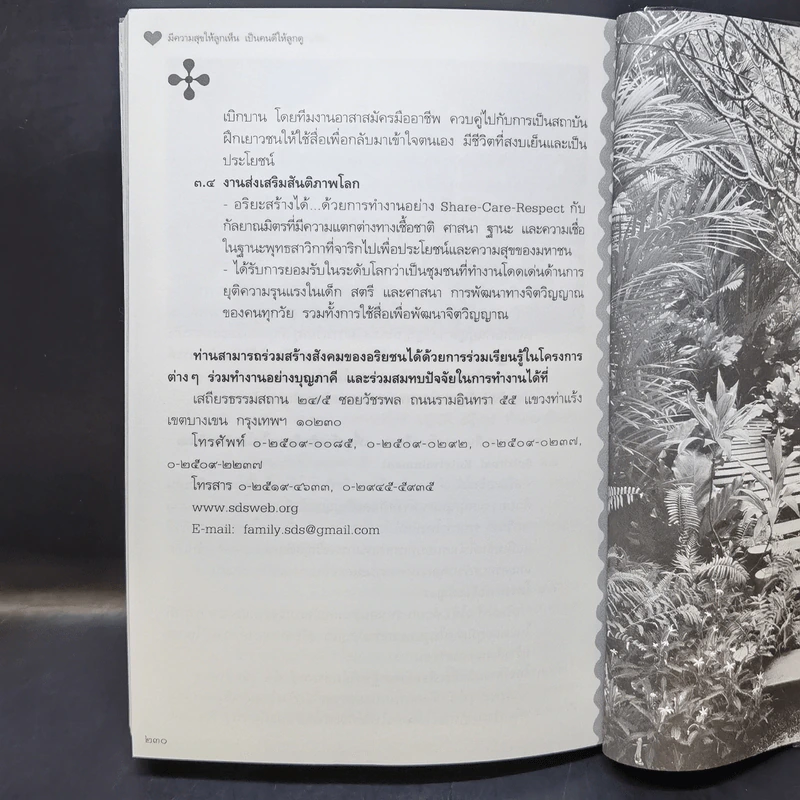 มีความสุขให้ลูกเห็น เป็นคนดีให้ลูกดู
เบิกบาน โดยทีมงานอาสาสมัครมืออาชีพ ควบคู่ไปกับการเป็นสถาบัน
ฝึกเยาวชนให้ใช้สื่อเพื่อกลับมาเข้าใจตนเอง มีชีวิตที่สงบเย็นและเป็น
ประโยชน์
๓.๔ งานส่งเสริมสันติภาพโลก
- อริยะสร้างได้...ด้วยการทำงานอย่าง Share-Care-Respect กับ
กัลยาณมิตรที่มีความแตกต่างทางเชื้อชาติ ศาสนา ฐานะ และความเชื่อ
ในฐานะพุทธสาวิกาที่จาริกไปเพื่อประโยชน์และความสุขของมหาชน
- ได้รับการยอมรับในระดับโลกว่าเป็นชุมชนที่ทำงานโดดเด่นด้านการ
ยุติความรุนแรงในเด็ก สตรี และศาสนา การพัฒนาทางจิตวิญญาณ
ของคนทุกวัย รวมทั้งการใช้สื่อเพื่อพัฒนาจิตวิญญาณ
ท่านสามารถร่วมสร้างสังคมของอริยชนได้ด้วยการร่วมเรียนรู้ในโครงการ
ต่างๆ ร่วมทำงานอย่างบุญภาคี และร่วมสมทบปัจจัยในการทำงานได้ที่
เสถียรธรรมสถาน ๒๔/๕ ซอยวัชรพล ถนนรามอินทรา ๕๕ แขวงท่าแร้ง
เขตบางเขน กรุงเทพฯ ๑๐๒๓๐
โทรศัพท์ ๐-๒๕๐๙-๐๐๘๕, ๐-๒๕๐๙-๐๒๙๒, ๐-๒๕๐๙-๐๒๓๗,
๐-๒๕๐๙-๒๒๓๗
โทรสาร ๐-๒๕๑๙-๔๖๓๓, ๐-๒๙๔๕-๕๙๓๕
www.sdsweb.org
E-mail: family.sds@gmail.com
๒๓๐